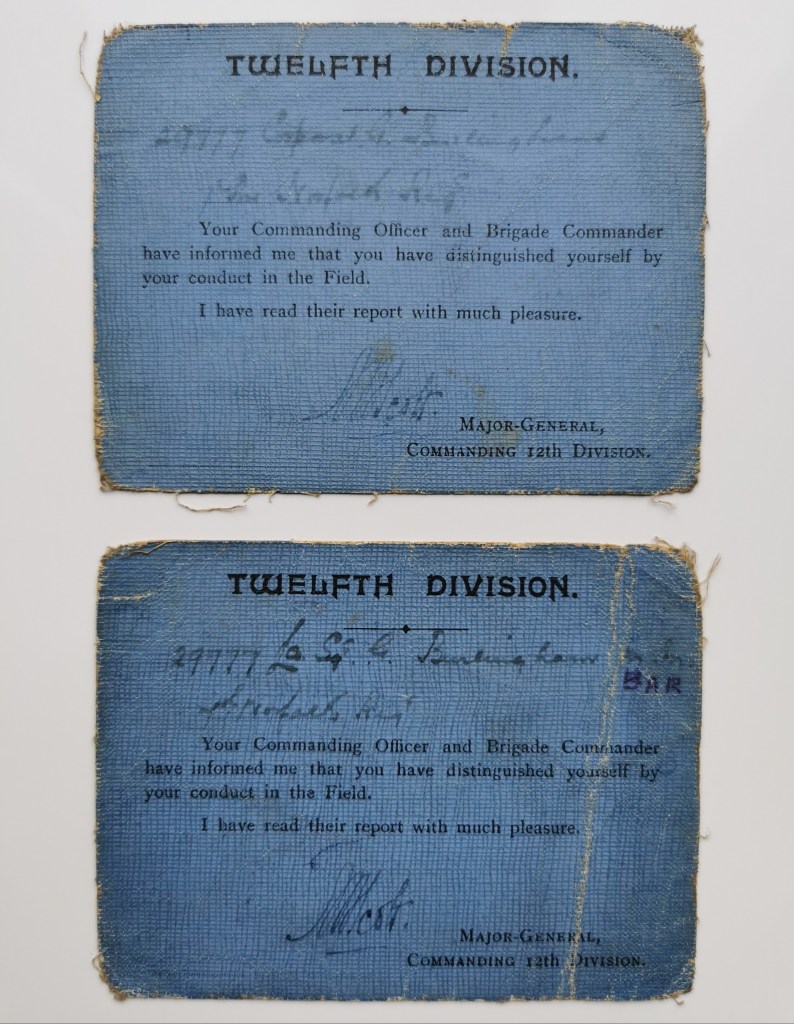 TWELFTH DIVISION.
29777 Corporal G. Burlingham
Norfolk Reg
Your Commanding Officer and Brigade Commander
have informed me that you have distinguished yourself by
your conduct in the Field.
I have read their report with much pleasure.
Scott.
MAJOR-GENERAL,
COMMANDING 12th DIVISION.
TWELFTH DIVISION.
29777 G. Burlingham
BAR
Norfolk Reg
Your Commanding Officer and Brigade Commander
have informed me that you have distinguished yourself by
your conduct in the Field.
I have read their report with much pleasure.
Scott.
MAJOR-GENERAL,
COMMANDING 12th DIVISION.